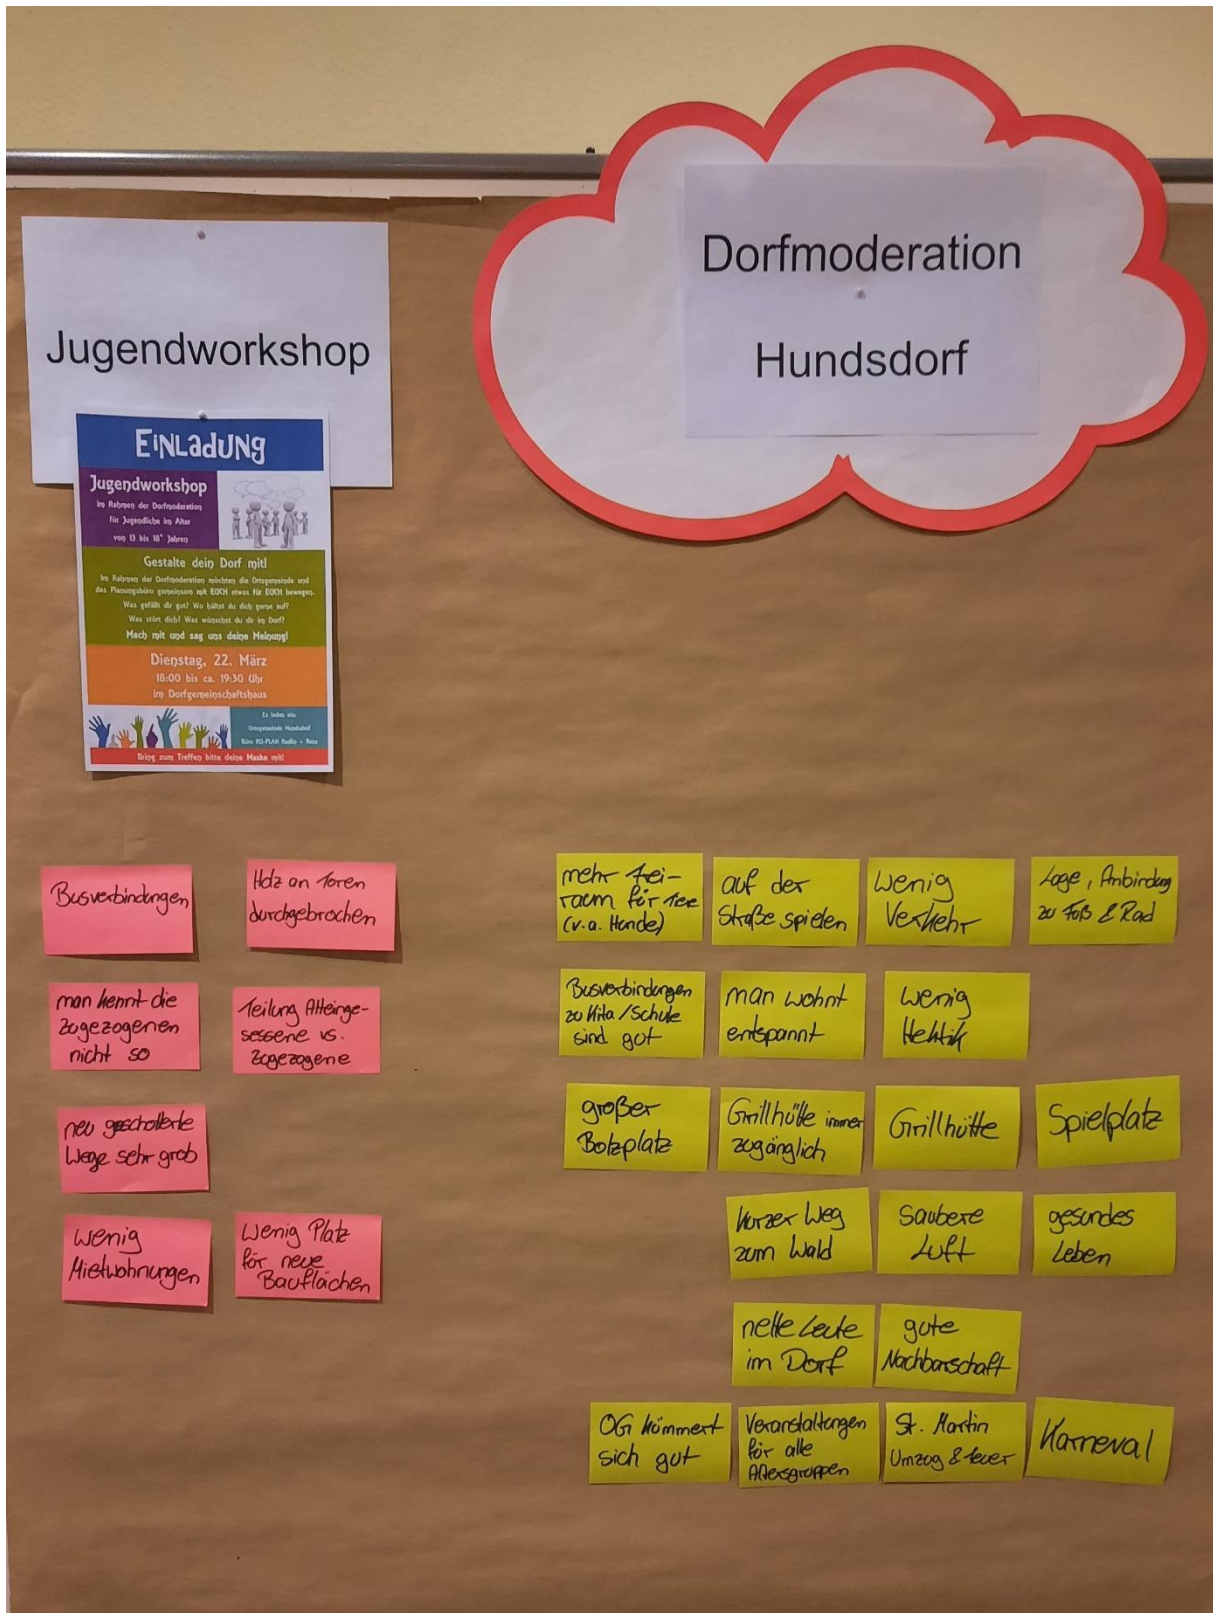 Dorfmoderation
Hundsdorf
Jugendworkshop
EiNLadUNg
Jugendworkshop
im Rahmen der Dorfmoderation
für Jugendliche im Alter
von 13 bis 18⁺ Jahren
Gestalte dein Dorf mit!
Im Rahmen der Dorfmoderation möchten die Ortsgemeinde und
das Planungsbüro gemeinsam mit EUCH etwas für EUCH bewegen.
Was gefällt dir gut? Wo hältst du dich gerne auf?
Was stört dich? Was wünschst du dir im Dorf?
Mach mit und sag uns deine Meinung!
Dienstag, 22. März
18:00 bis ca. 19:30 Uhr
im Dorfgemeinschaftshaus
Es laden ein:
Ortsgemeinde Hundsdorf
Büro RU-PLAN Redlin + Renz
Bring zum Treffen bitte deine Maske mit!
Busverbindungen
Holz an Toren
durchgebrochen
man kennt die
zugezogenen
nicht so
Teilung Alteinge-
sessene vs.
Zugezogene
neu geschotterte
Wege sehr grob
wenig
Mietwohnungen
Wenig Platz
für neue
Bauflächen
mehr Frei-
raum für Tiere
(v.a. Hunde)
auf der
Straße spielen
wenig
Verkehr
Lage, Anbindung
zu Fuß & Rad
Busverbindungen
zu Kita/Schule
sind gut
man wohnt
entspannt
wenig
Hektik
großer
Bolzplatz
Grillhütte immer
zugänglich
Grillhütte
Spielplatz
kurzer Weg
zum Wald
saubere
Luft
gesundes
Leben
nette Leute
im Dorf
gute
Nachbarschaft
OG kümmert
sich gut
Veranstaltungen
für alle
Altersgruppen
St. Martin
Umzug & Feuer
Karneval